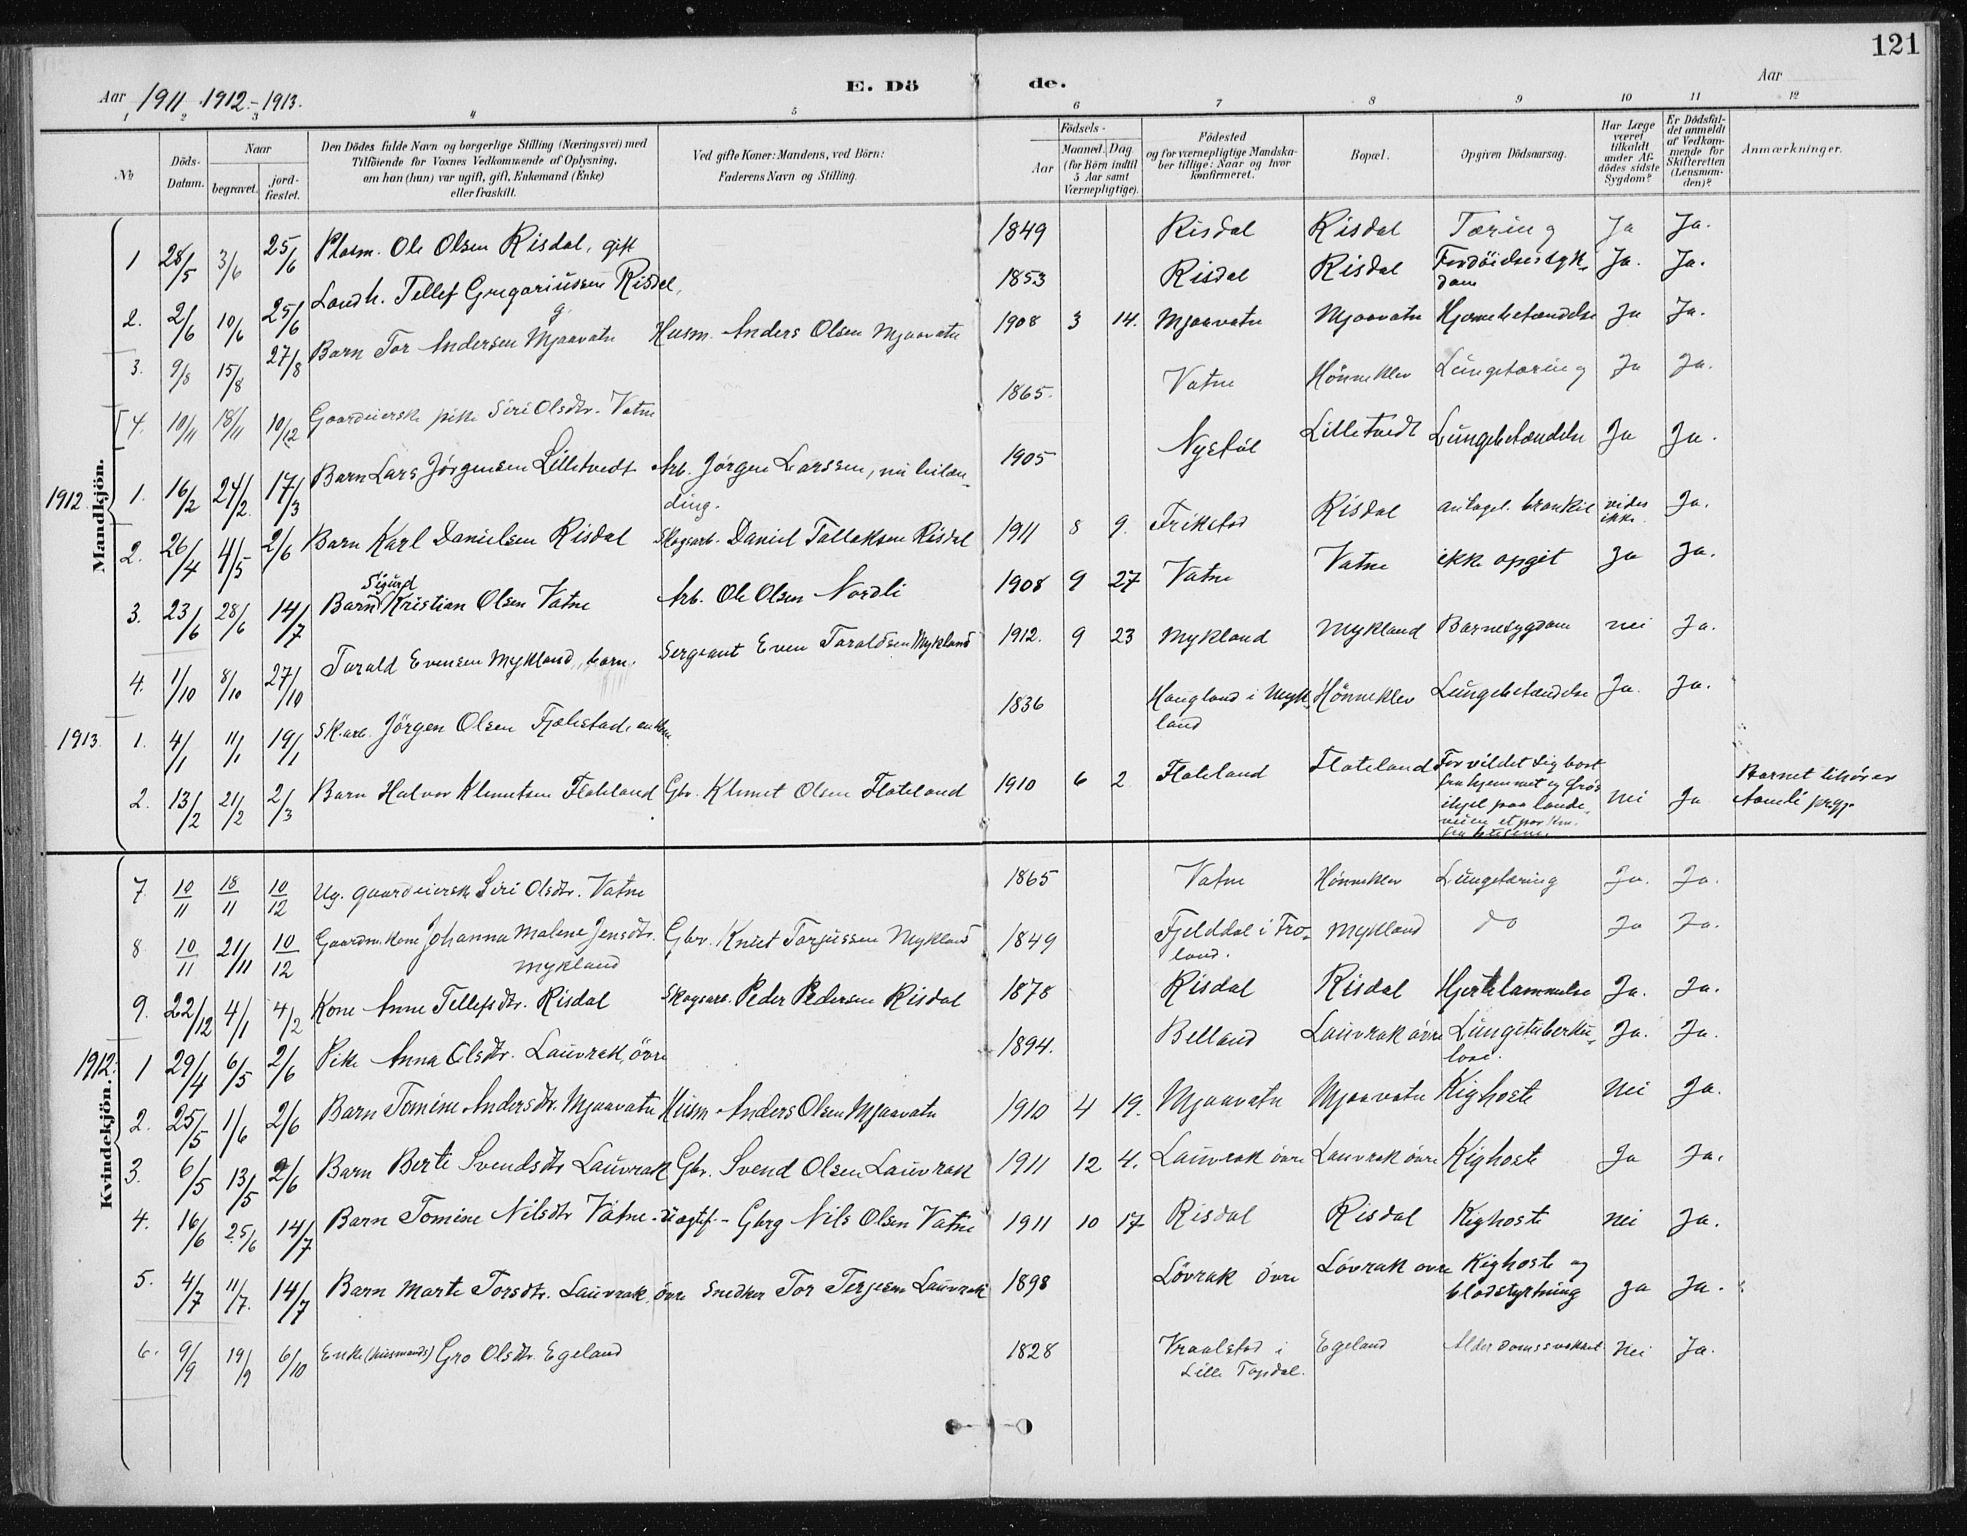 121
Aar 1911 . 1912. - 1913.
E. Dö de.
Aar
1 2 3 4 5 6 7 8 9 10 11 12
№ Döds-Datum. Naar begravet. jordfæstet. Den Dödes fulde Navn og borgerlige Stilling (Næringsvei) med Tilföiende for Voxnes Vedkommende af Oplysning, om han (hun) var ugift, gift, Enkemand (Enke) eller fraskilt. Ved gifte Koner: Mandens, ved Börn: Faderens Navn og Stilling. Födsels- Aar Maaned. Dag (for Börn indtil 5 Aar samt Værnepligtige). Födested og for værnepligtige Mandskaber tillige: Naar og hvor konfirmeret. Bopæl. Opgiven Dödsaarsag. Har Læge været tilkaldt under Afdödes sidste Sygdom? Er Dödsfaldet anmeldt af Vedkommende for Skifteretten (Lensmanden)? Anmærkninger.
Mandkjön.
1 28/5 3/6 25/6 Plasm. Ole Olsen Risdal, gift 1849 Risdal Risdal Tæring Ja Ja.
2. 2/6 10/6 25/6 Landh. Tellef Gregoriussen Risdal, g. 1853 Risdal Risdal Fordöielsessygdom Ja. Ja.
3. 9/8 15/8 27/8 Barn Tor Andersen Mjaavatn Husm. Anders Olsen Mjaavatn 1908 3 14. Mjaavatn Mjaavatn Hjernebetændelse Ja Ja.
4. 10/11 18/11 10/12 Gaardeierske pike Siri Olsdtr. Vatne 1865. Vatne Hönneklev Lungetæring Ja Ja.
1912 1. 16/2 24/2. 17/3 Barn Lars Jörgensen Lilletvedt Arb. Jörgen Larssen, nu leilænding. 1905 Nystöl Lilletvedt Lungebetændelse Ja Ja.
2. 26/4 4/5 2/6 Barn Karl Danielsen Risdal Skogsarb. Daniel Tallaksen Risdal 1911 8 9. Frikstad Risdal antagel. bronkit vides ikke. Ja.
3. 23/6 28/6 14/7 Barn Sigurd Kristian Olsen Vatne Arb. Ole Olsen Nordli 1908 9 27 Vatne Vatne ikke opgit Ja Ja.
4. 1/10 8/10 27/10 Tarald Evensen Mykland, barn. Sergeant Even Taraldsen Mykland 1912. 9 23 Mykland Mykland Barnesygdom nei Ja.
1913 1. 4/1 11/1 19/1 Sk.arb. Jörgen Olsen Fjælestad, enkem. 1836 Haugland i Mykland Hönneklev Lungebetændelse Ja. Ja.
2. 13/2 21/2 2/3 Barn Halvor Klemetsen Flateland Gbr. Klemet Olsen Flateland 1910 6 2 Flateland Flateland Forvildet sig bort fra hjemmet og frös ihjel paa landeveien et par km. fra husene. nei Ja Barnet tilhörer Aamli prgj.
Kvindekjön.
7 10/11 18/11 10/12 Ug. gaardeierske Siri Olsdtr. Vatne 1865 Vatne Hönneklev Lungetæring Ja. Ja.
8 10/11 21/11 10/12 Gaardm. kone Johanna Malene Jensdtr. Mykland Gbr. Knut Torjussen Mykland 1849 Fjelddal i Froland. Mykland do Ja Ja.
9. 22/12 4/1 4/2 Kone Anne Tellefsdtr. Risdal Skogsarb. Peder Pedersen Risdal 1878 Risdal Risdal Hjertelammelse Ja. Ja.
1912: 1 29/4 6/5 2/6 Pike Anna Olsdtr. Lauvrak, övre 1894. Belland Lauvrak övre Lungetuberkulose. Ja. Ja.
2. 25/5 1/6 2/6 Barn Tomine Andersdtr. Mjaavatn Husm. Anders Olsen Mjaavatn 1910 4 19. Mjaavatn Mjaavatn Kighoste Nei Ja.
3. 6/5 13/5 2/6 Barn Berte Svendsdtr Lauvrak Gbr. Svend Olsen Lauvrak 1911 12 4. Lauvrak övre Lauvrak övre Kighoste Ja Ja.
4. 16/6 25/6 14/7 Barn Tomine Nilsdtr Vatne - Uægtef. - Gbrg Nils Olsen Vatne 1911 10 17 Risdal Risdal Kighoste nei Ja.
5. 4/7 11/7. 14/7 Barn Marte Torsdtr. Lauvrak, övre Snedker Tor Terjesen Lauvrak 1898 Lövrak övre Lövrak övre Kighoste og blodstyrtning Ja Ja.
6. 9/9 19/9 6/10 Enke (husmands) Gro Olsdtr. Egeland 1828 Vraalstad i Lille Topdal. Egeland Alderdomssvakhet Nei Ja.